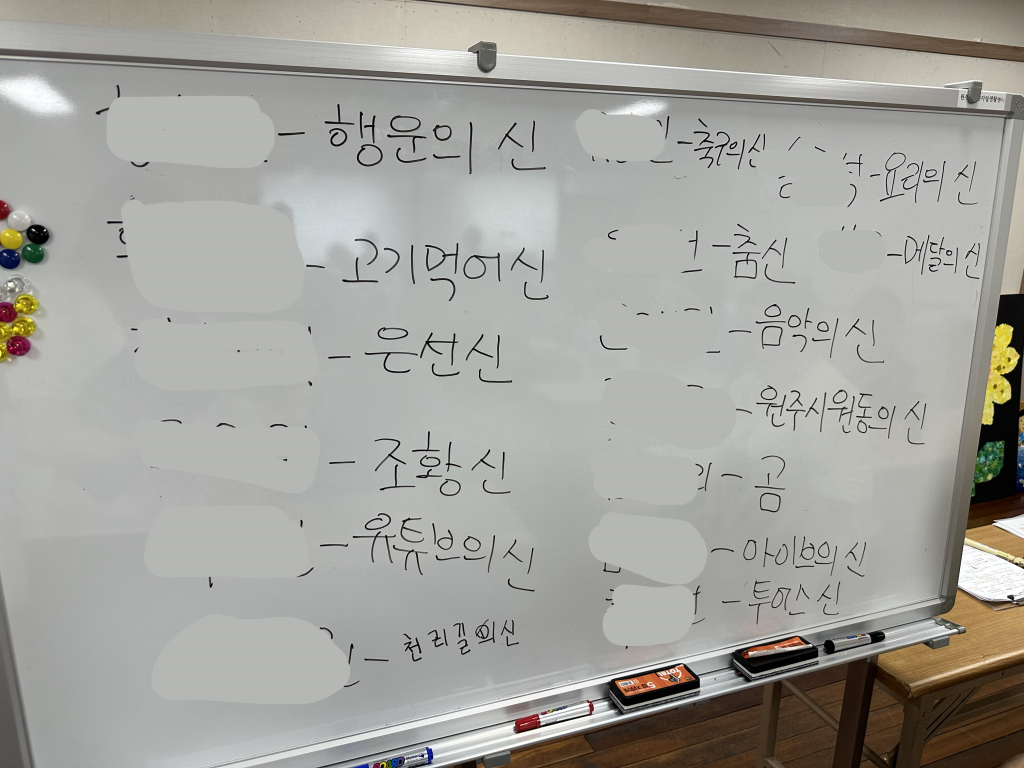 - 행운의 신
- 고기먹어신
- 은선신
- 조황신
- 유튜브의신
- 천리길의신
- 축구의신
- 요리의 신
- 춤신
- 메달의신
- 음악의 신
- 원주시원동의 신
- 곰
- 아이브의 신
- 투어스 신